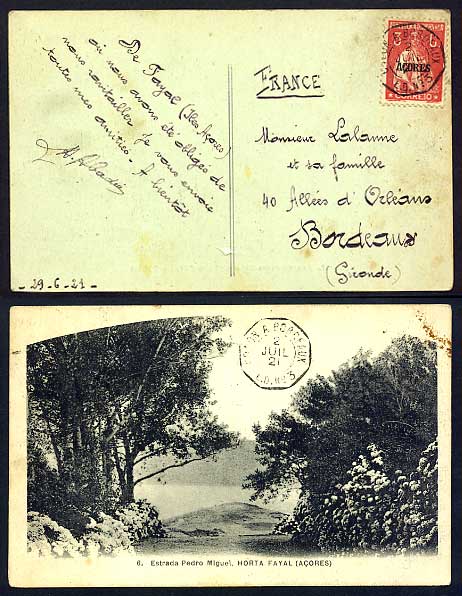 De Fayal (Iles Açores)
où nous avons été obligés de
nous ravitailler je vous envoie
toutes mes amitiés - A bientôt
- 29 - 6 - 21 -
FRANCE
Monsieur Lalanne
et sa famille
40 Allées d'Orléans
Bordeaux
(Gironde)
AÇORES
CORREIO
A BORDEAUX
2
JUIL
21
L.D. Nº3
6. Estrada Pedro Miguel. HORTA FAYAL (AÇORES)